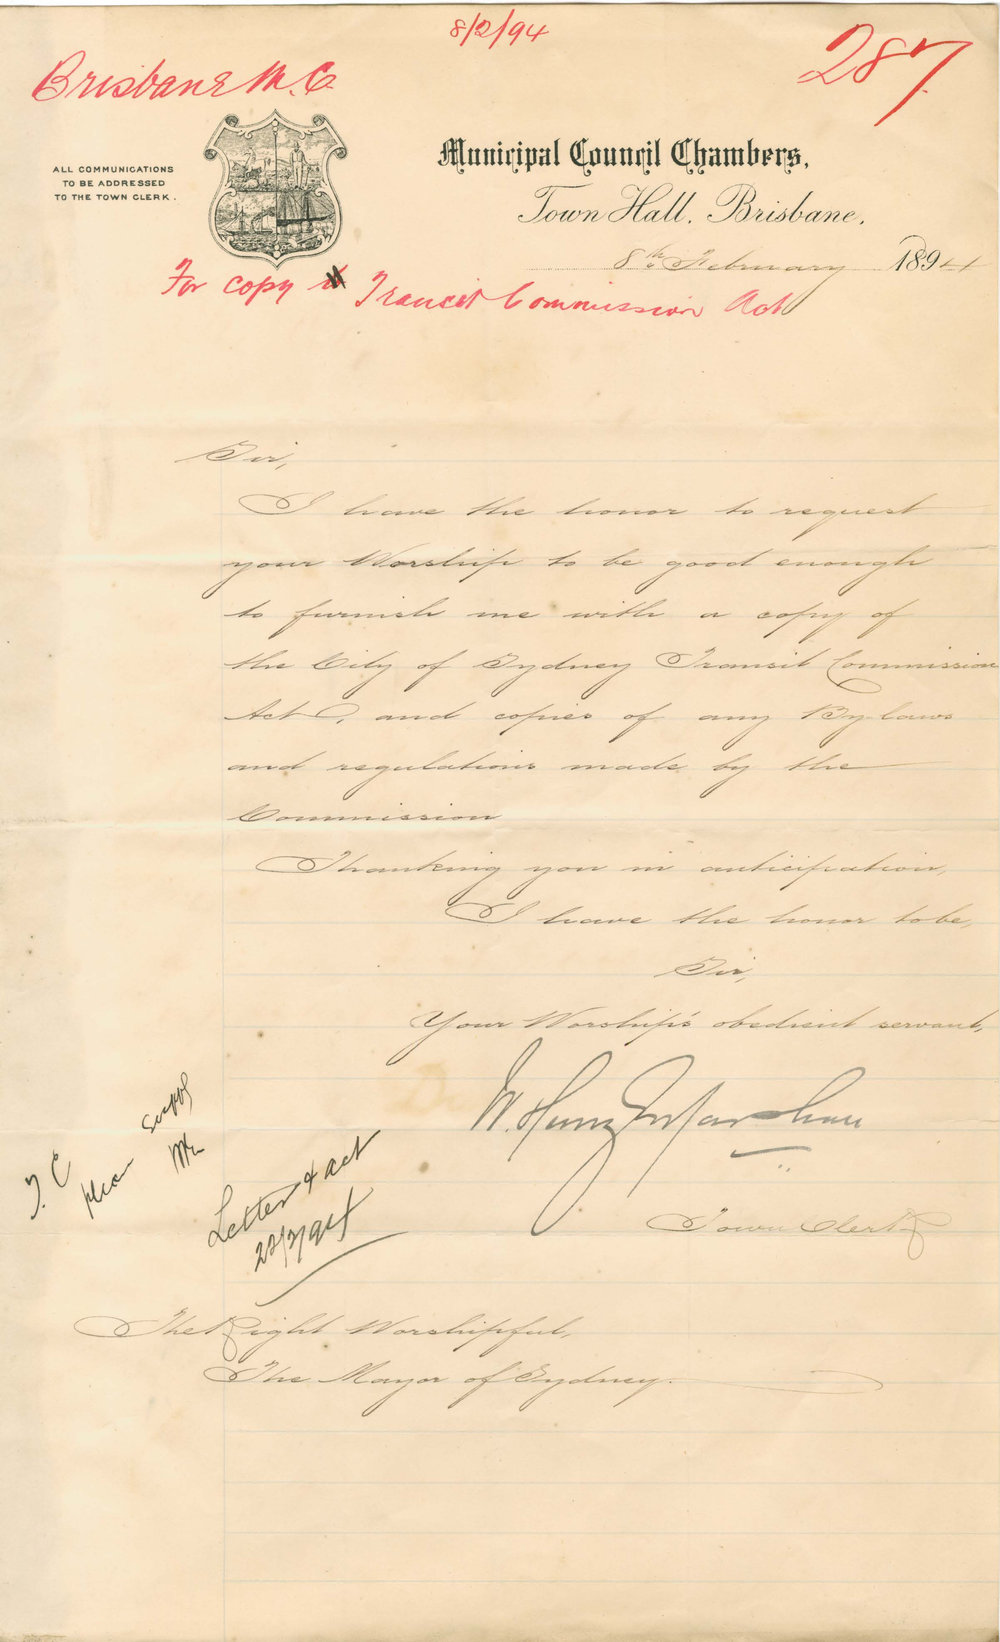 8/2/94
287.
Brisbane M.C.
ALL COMMUNICATIONS
TO BE ADDRESSED
TO THE TOWN CLERK.
Municipal Council Chambers,
Town Hall, Brisbane,
8th February 1894
For copy Transit Commission Act
Sir,
I have the honor to request
your Worship to be good enough
to furnish me with a copy of
the City of Sydney Transit Commission
Act, and copies of any By-laws
and regulations made by the
Commission
Thanking you in anticipation,
I have the honor to be,
Sir,
Your Worship's obedient servant,
W. Henry G. Marshall
Town Clerk
T.C.
please supply
Letter & act
22/2/94
The Right Worshipful,
The Mayor of Sydney.